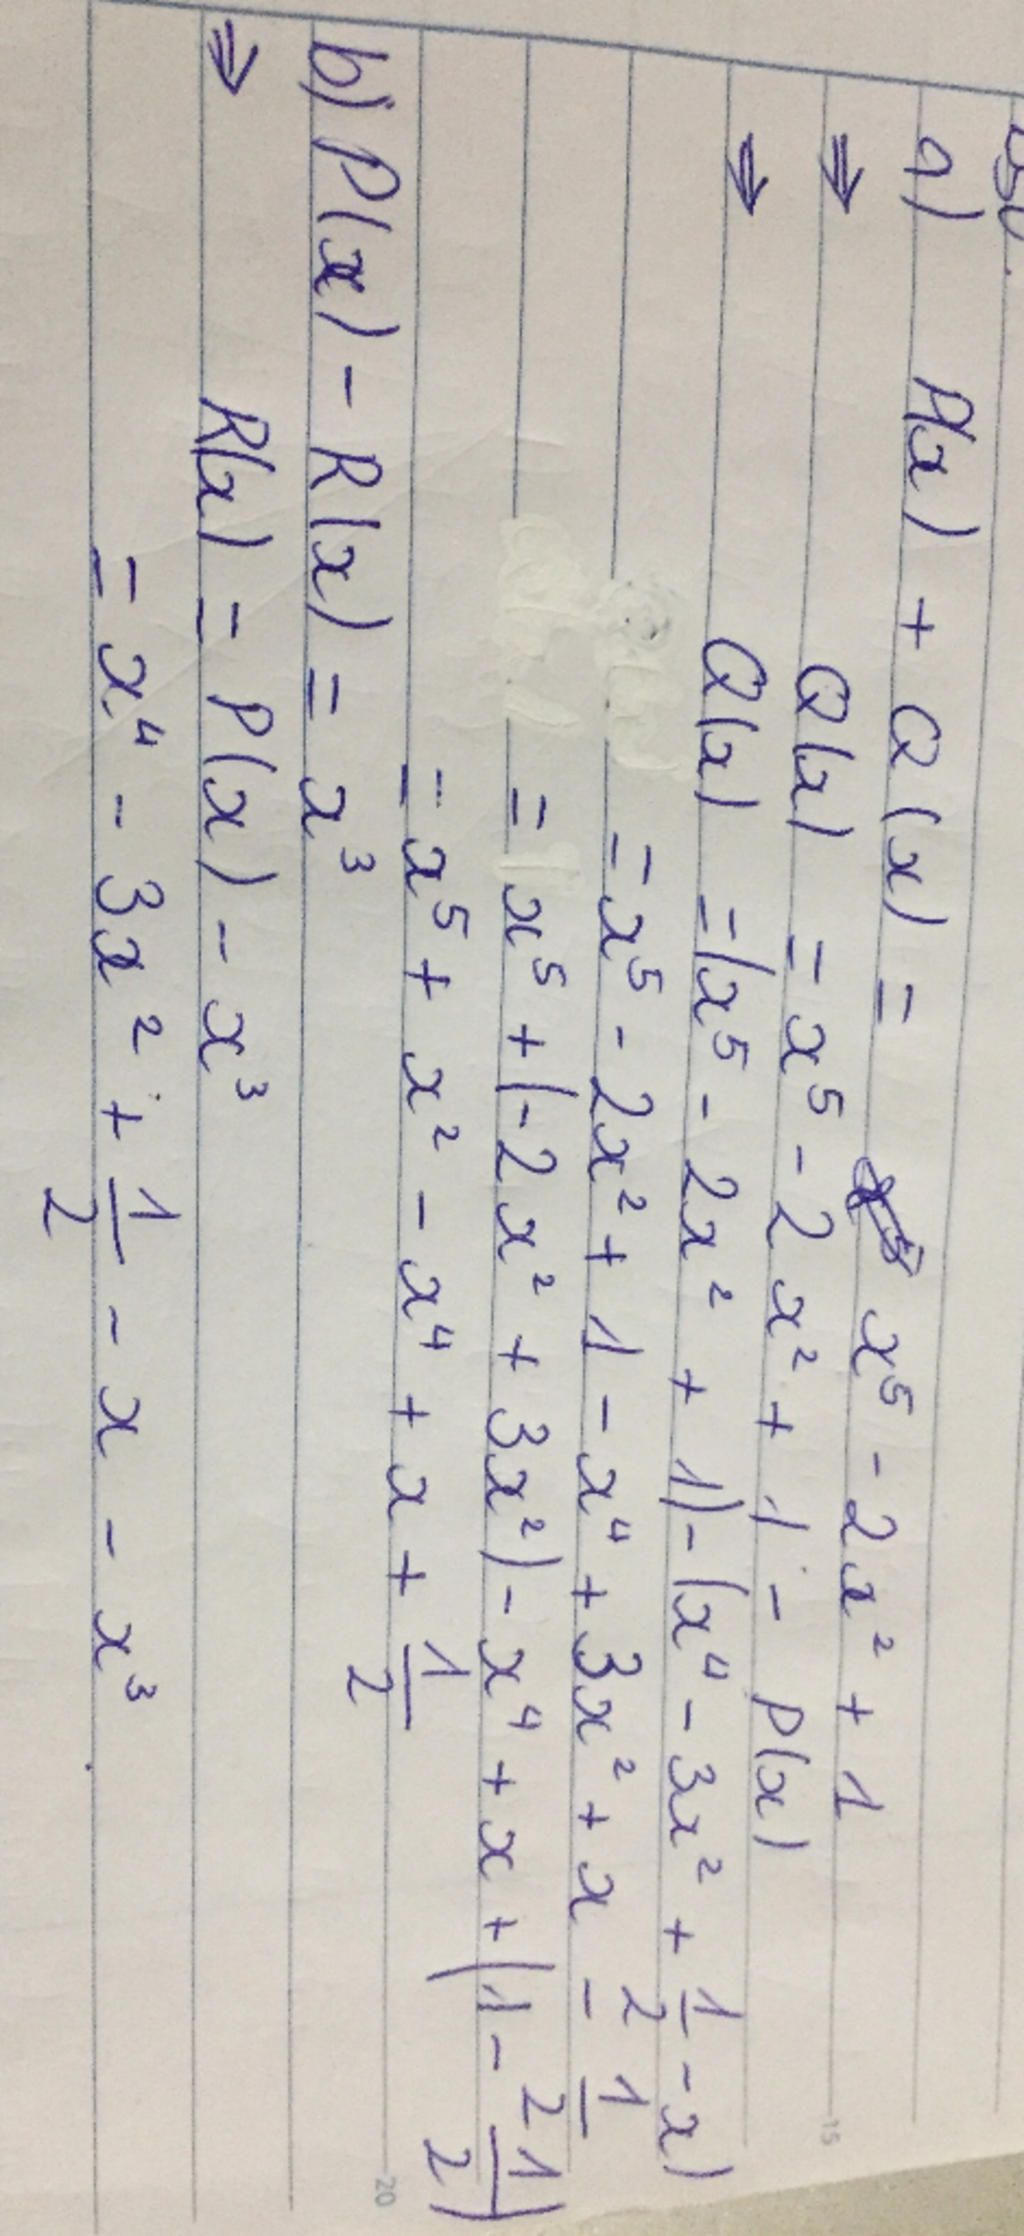 a) P(x) + Q(x) = x⁵ - 2x² + 1
⇒ Q(x) = x⁵ - 2x² + 1 - P(x)
⇒ Q(x) = (x⁵ - 2x² + 1) - (x⁴ - 3x² + 1/2 - x)
= x⁵ - 2x² + 1 - x⁴ + 3x² + x - 1/2
= x⁵ + (-2x² + 3x²) - x⁴ + x + (1 - 1/2)
= x⁵ + x² - x⁴ + x + 1/2
b) P(x) - R(x) = x³
⇒ R(x) = P(x) - x³
= x⁴ - 3x² + 1/2 - x - x³